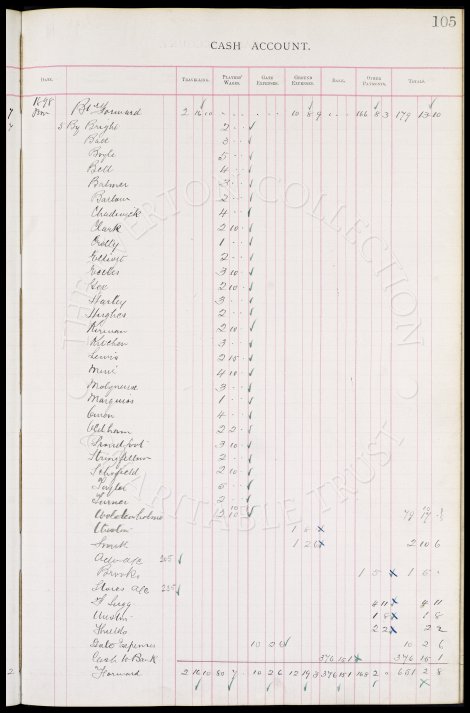 105
CASH ACCOUNT.
DATE. TRAVELLING. PLAYERS' WAGES. GATE EXPENSES. GROUND EXPENSES. BANK. OTHER PAYMENTS. TOTALS.
1898
Nov Bt Forward 2 16 10 10 8 9 166 8 3 179 13 10
5 By Bright 2
Ball 3
Boyle 5
Bell 4
Balmer 3
Barlow 2
Chadwick 4
Clark 2 10
Crelly 1
Elliott 2
Eccles 3 10
Gee 2 10
Hartley 3
Hughes 2
Kirwan 2 10
Kitchen 3
Lewis 2 15
Muir 4 10
Molyneux 3
Marquiss 1
Owen 4
Oldham 2 2
Proudfoot 3 10
Stringfellow 2
Schofield 2 10
Taylor 5
Turner 2
Wolstenholme 2 10
Weston 1 5
Smith 1 2 6 2 10 6
Adv a/c
Brooks 1 5 1 5
Stores a/c
F Sugg 4 11 4 11
Weston 1 8 1 8
Shields 2 2 2 2
Gate Expenses 10 2 6 10 2 6
Cash to Bank 376 15 1 376 15 1
Forward 2 16 10 80 7 10 2 6 12 19 3 376 15 1 168 2 0 651 2 8
THE EVERTON COLLECTION
CHARITABLE TRUST